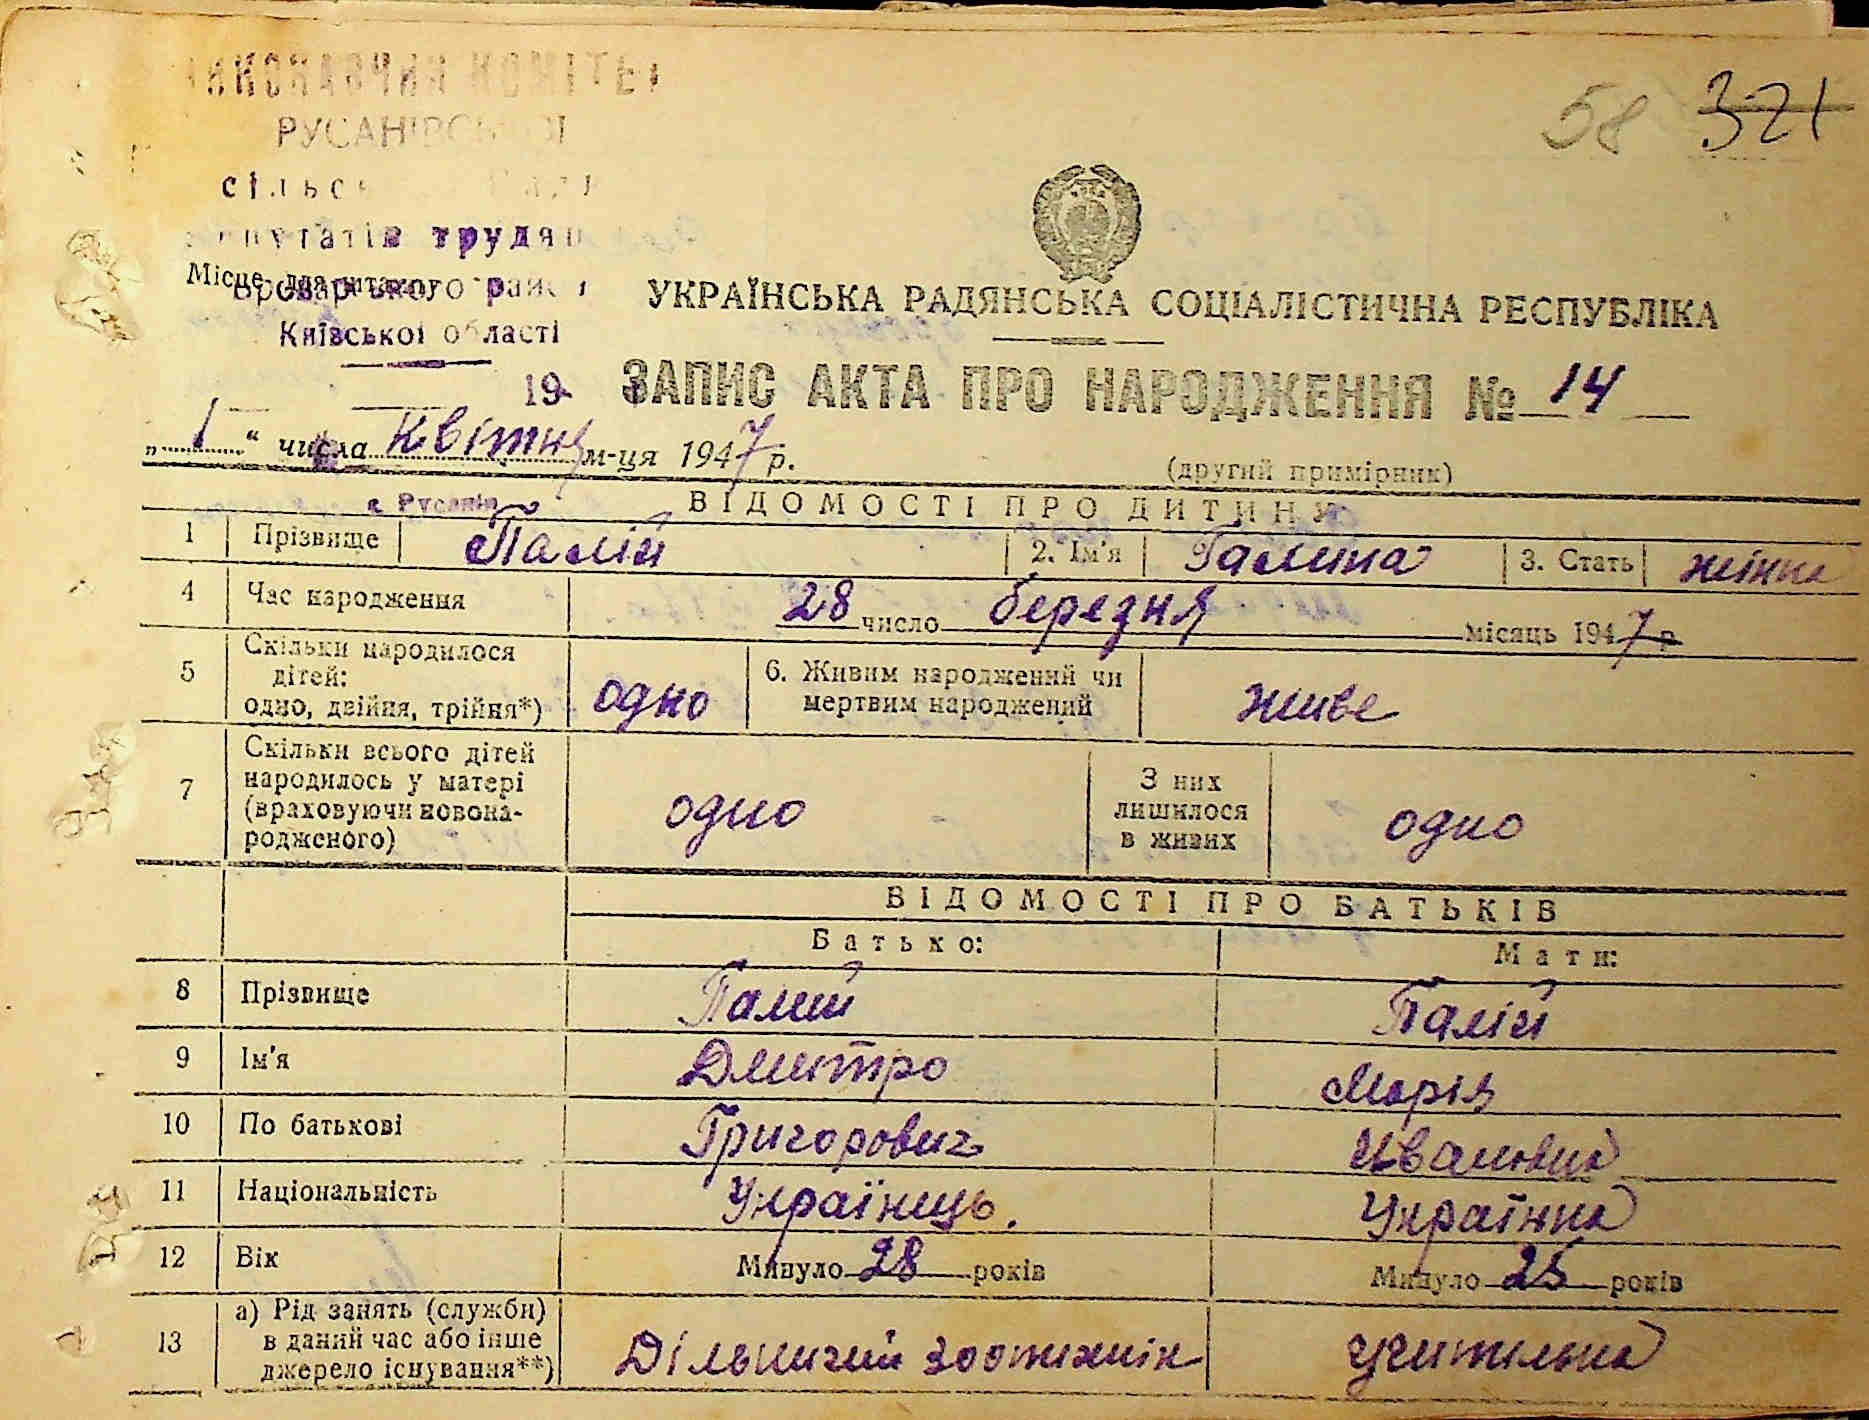 ВИКОНАВЧИЙ КОМІТЕТ
РУСАНІВСЬКОЇ
сільської Ради
депутатів трудящ
58 321
Місце для штампу
Броварського району
Київської області
УКРАЇНСЬКА РАДЯНСЬКА СОЦІАЛІСТИЧНА РЕСПУБЛІКА
19
ЗАПИС АКТА ПРО НАРОДЖЕННЯ № 14
„1“ числа Квітня м-ця 1947 р.
(другий примірник)
с. Русанів
ВІДОМОСТІ ПРО ДИТИНУ
1 Прізвище Палій 2. Ім'я Галина 3. Стать жінка
4 Час народження 28 число березня місяць 1947 р
5 Скільки народилося дітей: одно, двійня, трійня*) одно 6. Живим народжений чи мертвим народжений живе
7 Скільки всього дітей народилось у матері (враховуючи новонародженого) одно З них лишилося в живих одно
ВІДОМОСТІ ПРО БАТЬКІВ
Батько: Мати:
8 Прізвище Палий Палій
9 Ім'я Дмитро Марія
10 По батькові Григорович Ивановна
11 Національність Українець. Українка
12 Вік Минуло 28 років Минуло 25 років
13 а) Рід занять (служби) в даний час або інше джерело існування**) Дільничий зоотехнік учителька